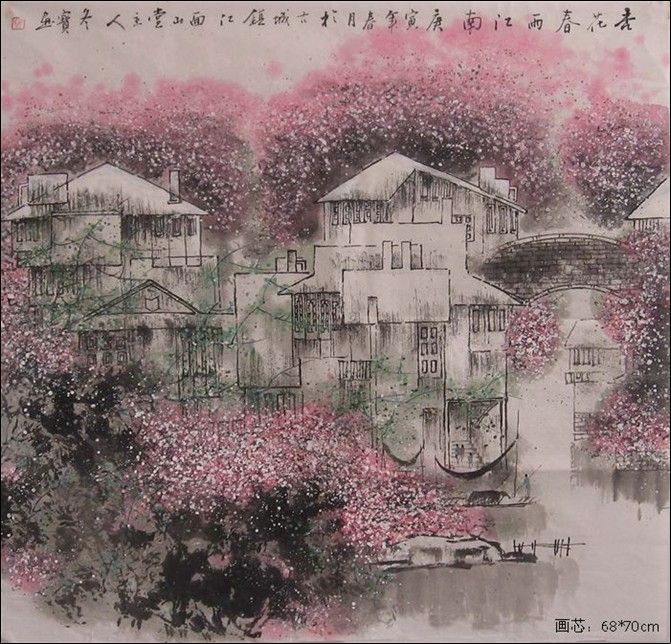 杏花春雨江南庚寅年春月於古城鎮江西山堂主人冬寶画
画芯：68*70cm